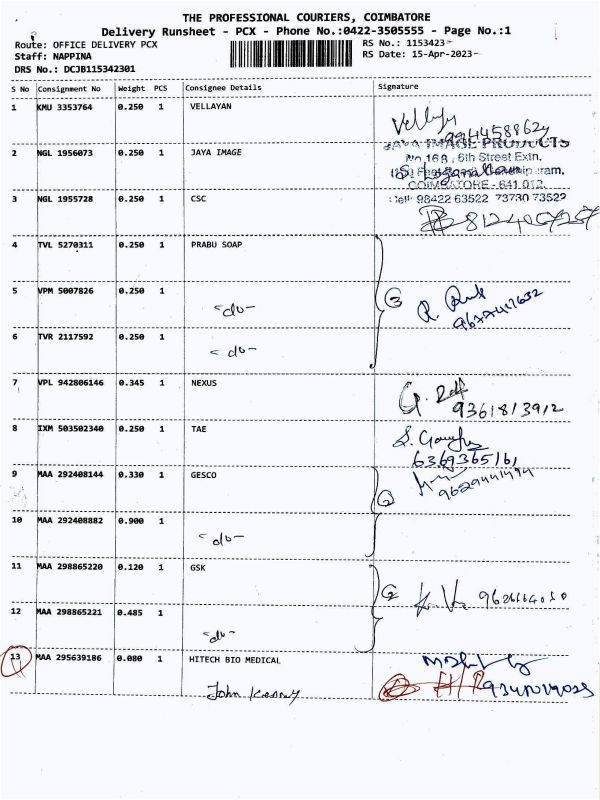 THE PROFESSIONAL COURIERS, COIMBATORE
Delivery Runsheet - PCX - Phone No.:0422-3505555 - Page No.:1
Route: OFFICE DELIVERY PCX
RS No.: 1153423-
Staff: NAPPINA
RS Date: 15-Apr-2023-
DRS No.: DCJB115342301
S No Consignment No Weight PCS Consignee Details Signature
1 KMU 3353764 0.250 1 VELLAYAN
2 NGL 1956073 0.250 1 JAYA IMAGE
JAYA IMAGE PRODUCTS
No 168, 6th Street Extn,
COIMBATORE - 641 012.
Cell: 98422 63522 73730 73522
3 NGL 1955728 0.250 1 CSC
4 TVL 5270311 0.250 1 PRABU SOAP
5 VPM 5007826 0.250 1
-do- 3
6 TVR 2117592 0.250 1
-do-
7 VPL 942806146 0.345 1 NEXUS
9361813912
8 IXM 503502340 0.250 1 TAE
6369365161
9 MAA 292408144 0.330 1 GESCO
9629441494
10 MAA 292408882 0.900 1
-do-
11 MAA 298865220 0.120 1 GSK
12 MAA 298865221 0.485 1
-do-
13 MAA 295639186 0.080 1 HITECH BIO MEDICAL
John Kenny